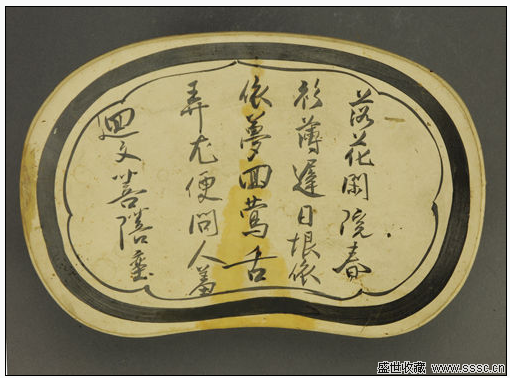 落花閑院春
衫薄遲日恨依
依夢回鶯舌
弄尤便問人羞
迴文菩薩蠻
盛世收藏
www.sssc.cn